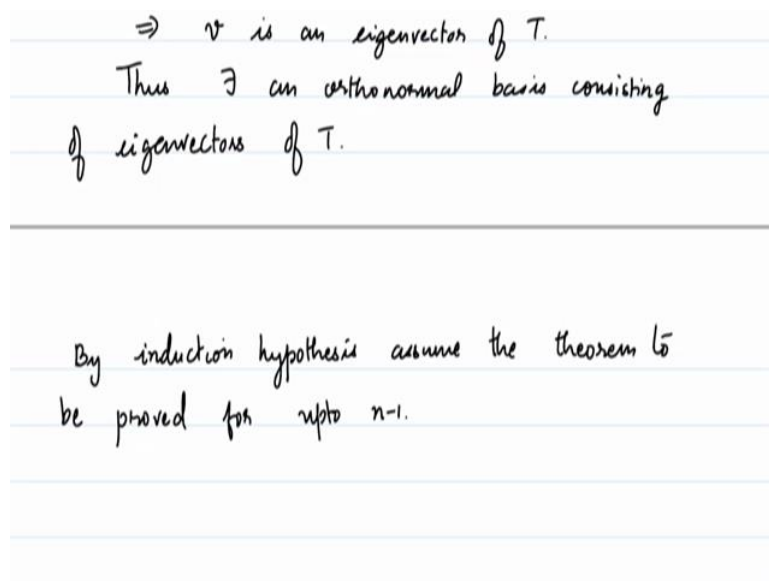 ⇒ v is an eigenvector of T.
Thus ∃ an orthonormal basis consisting
of eigenvectors of T.
By induction hypothesis assume the theorem to
be proved for upto n-1.